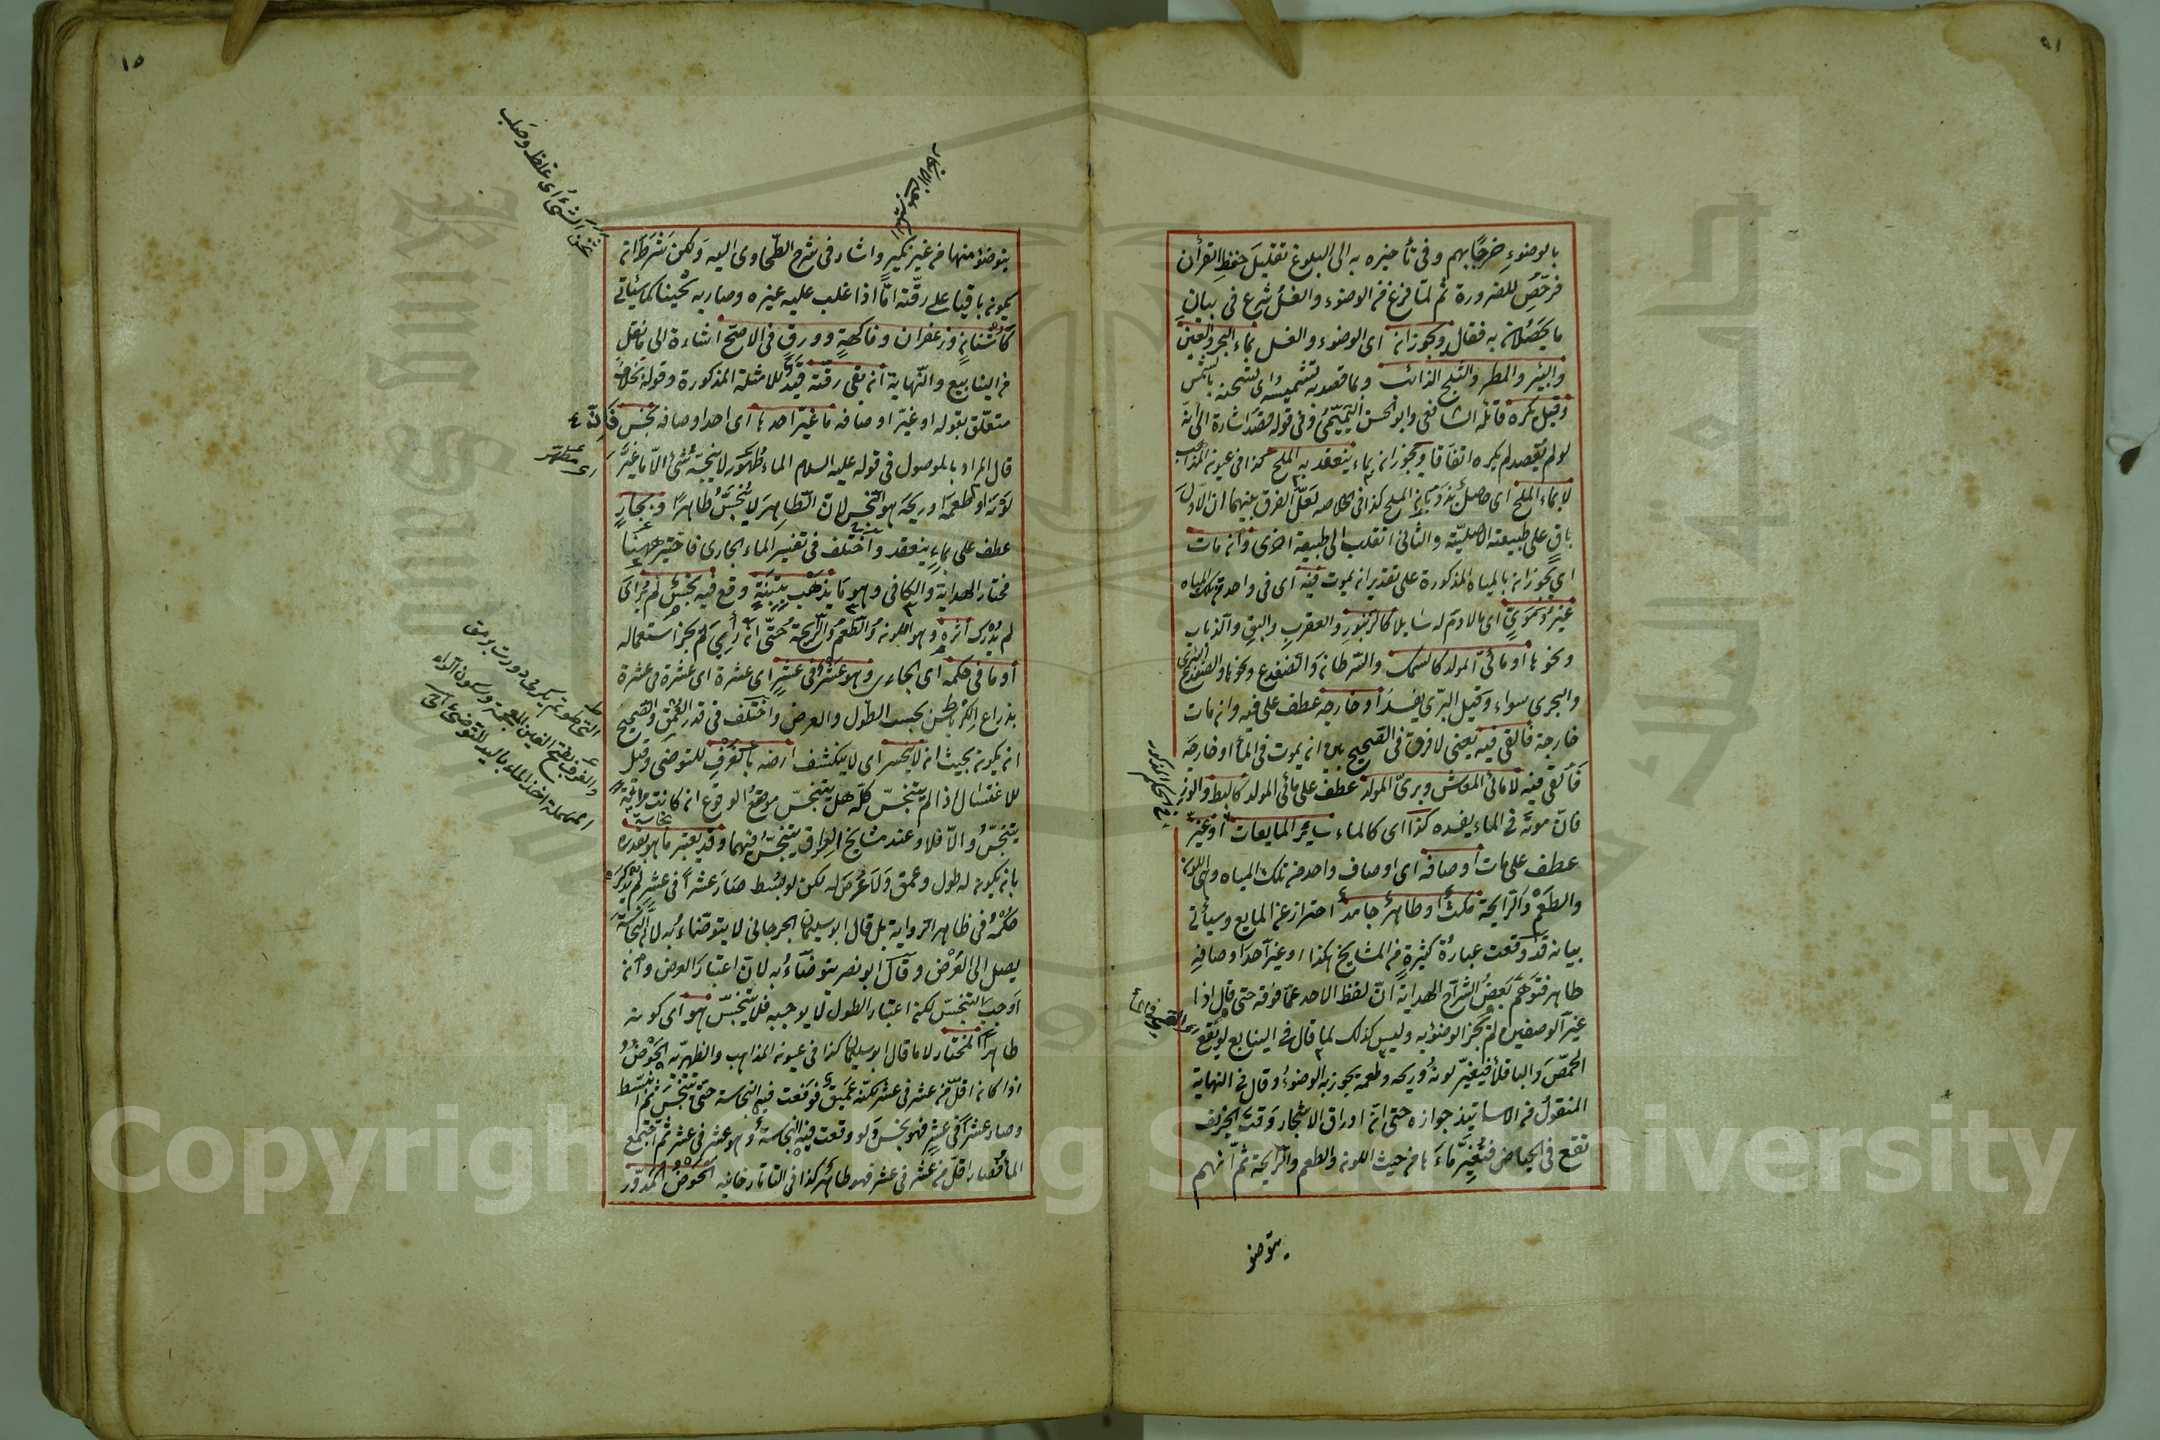 ٥١
بالوضوءِ حَرَجًا بهم وفى تأخيره به الى البلوغ تقليلَ حفظِ القرآن
فرخّص للضرورة ثم لمّا فرغ من الوضوء والغسل شرع فى بيانِ
ما يَحصُلان به فقال ويجوزان اى الوضوء والغسل بماء البحر والعين
والبئر والمطر والثلج الذائب وبما قصد به تشميسه اى تسخينه بالشمس
وقيل يكره قاله الشافعى وابو الحسن التميمىّ وفى قوله قصد اشارة الى انّه
لو لم يُقصد لم يكره اتفاقا ويجوزان بماء ينعقد به الملح كذا فى عيون المذاهب
لا بماء الملح اى حصل بذوبان الملح كذا فى الخلاصه لعلّ الفرق بينهما ان الاول
باقٍ على طبيعته الاصليّة والثانى انقلب الى طبيعة اخرى وان مات
اى يجوزان بالمياه المذكورة على تقدير ان يموت فيه اى فى واحد من تلك المياه
غيرُ دَمَوىّ اى ما لا دم له سائلا كالزنبور والعقرب والبق والذباب
ونحوها او مائىّ المولد كالسمك والسرطان والضفدع ونحوها والضفدع البرّى
والبحرى سواء وقيل البرّى يفسد او خارجه عطف على فيه وان مات
خارجه فالقى فيه يعنى لا فرق فى الصحيح بين ان يموت فى الماء او خارجه
فالقى فيه لا مائى المعاش وبرىّ المولد عطف على مائى المولد كالبط والوز
فان موته فى الماء يفسده كذا اى كالماء سائر المايعات او غيّر
عطف على مات اوصافه اى اوصاف واحد من تلك المياه وهى اللون
والطعم والرايحة مكث او طاهر جامد احتراز عن المايع وسيأتى
بيانه قد وقعت عبارة كثيرة من المشايخ هكذا او غيّر احد اوصافه
طاهر فتوهّم بعض الشراح الهداية انّ لفظ الاحد عمّا فوقه حتى قال اذا
غيّر الوصفين لم يجز الوضوء به وليس كذلك لما قال فى الينابيع لو نقع
الحمّص والباقلاء فيغيّر لونه وريحه وطعمه يجوز به الوضوء وقال فى النهاية
المنقول من الاساتيذ جوازه حتى ان اوراق الاشجار وقت الخريف
تقع فى الحياض فتغيّر ماءها من حيث اللون والطعم والرايحة ثم انهم
يتوضؤ
١٥
يتوضؤ منها من غير نكير واشار فى شرح الطحاوى اليه ولكن شَرَط ان
يكون باقيا على رقّته امّا اذا غلب عليه غيره وصار به ثخينا كما سيأتى
كأشنان وزعفران وفاكهةٍ وورقٍ فى الاصح اشارة الى ما نقل
من الينابيع والنّهاية ان بقى رقته قيد للامثلة المذكورة وقوله بخلاف
متعلّق بقوله او غيّر اوصافه ما غيّر احدها اى احد اوصافه نجس فانه
قال المراد بالموصول فى قوله عليه السلام الماء طهور لا ينجّسه شئ الا ما غيّر
لونه او طعمه او ريحه هو النجس لان الطاهر لا يُنجّس طاهرًا وبجارٍ
عطف على بماء ينعقد واختلف فى تفسير الماء الجارى فاختير ههنا
مختار الهداية والكافى وهو ما يذهب بتبنةٍ وقع فيه نجس لم يُرَ اى
لم يدرك اثره وهو اللون والطعم والرايحة حتى ان رُئى لم يجز استعماله
او ما فى حكمه اى الجارى وهو عشر فى عشر اى عشرة اى عشرة فى عشرة
بذراع الكرباس بحسب الطول والعرض واختلف فى قدر العمق والصحيح
ان يكون بحيث ان لا ينحسر اى لا ينكشف ارضه بالغَرْف للتوضى وقيل
للاغتسال اذا لم يتنجّس كلّه هل يتنجس موقع الوقوع ان كانت مرئية
يتنجّس والّا فلا وعند مشايخ العراق يتنجّس فيهما وقد يعتبر ما هو بقدره
بان يكون له طول وعمق ولا عرض له لكن لو بُسط صار عشرًا فى عشر لم يذكر
حكمه فى ظاهر الرواية بل قال ابو سليمان الجرجانى لا يتوضأ به لان النجاسة
يصل الى العرض وقال ابو نصر يتوضأ به لان اعتبار العرض وان
اوجب التنجس لكن اعتبار الطول لا يوجبه فلا يتنجّس هو اى كونه
طاهرا المختار لا ما قال ابو سليمان كذا فى عيون المذاهب والظهيرية الحوض
اذا كان اقلّ من عشر فى عشر لكنّه عميق فوقعت فيه النجاسة حتى تنجس ثم انبسط
وصار عشرًا فى عشر فهو نجس ولو وقعت فيه النجاسة وهو عشر فى عشر ثم اجتمع
الماء فصار اقل من عشر فى عشر فهو طاهر كذا فى التاتارخانيه الحوض المدوّر
ثخن الشئ اى غلظ وصلب
اى مطهر
والغرف بفتح الغين المعجمة وسكون الراء
المهملة اخذ الماء باليد للتوضئ